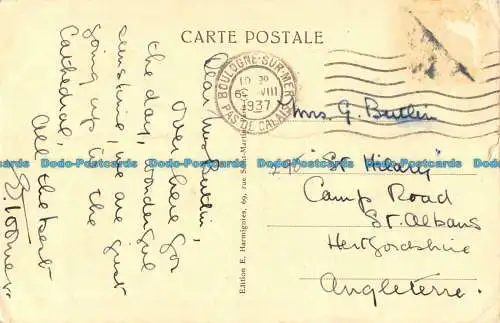 CARTE POSTALE
BOULOGNE-SUR-MER
6 VIII
1937
PAS DE CALAIS
Dear Mrs Butlin,
Over here for
the day, wonderful
sunshine, we are just
going up in the
Cathedral,
All the best
Mrs. G. Butlin
"St Hilary"
Camp Road
St. Albans
Hertfordshire
Angleterre.
Edition E. Harmignies, 69, rue Saint-Martin
Dodo-Postcards Dodo-Postcards Dodo-Postcards Dodo-Postcards Dodo-Postcards Dodo-Postcards